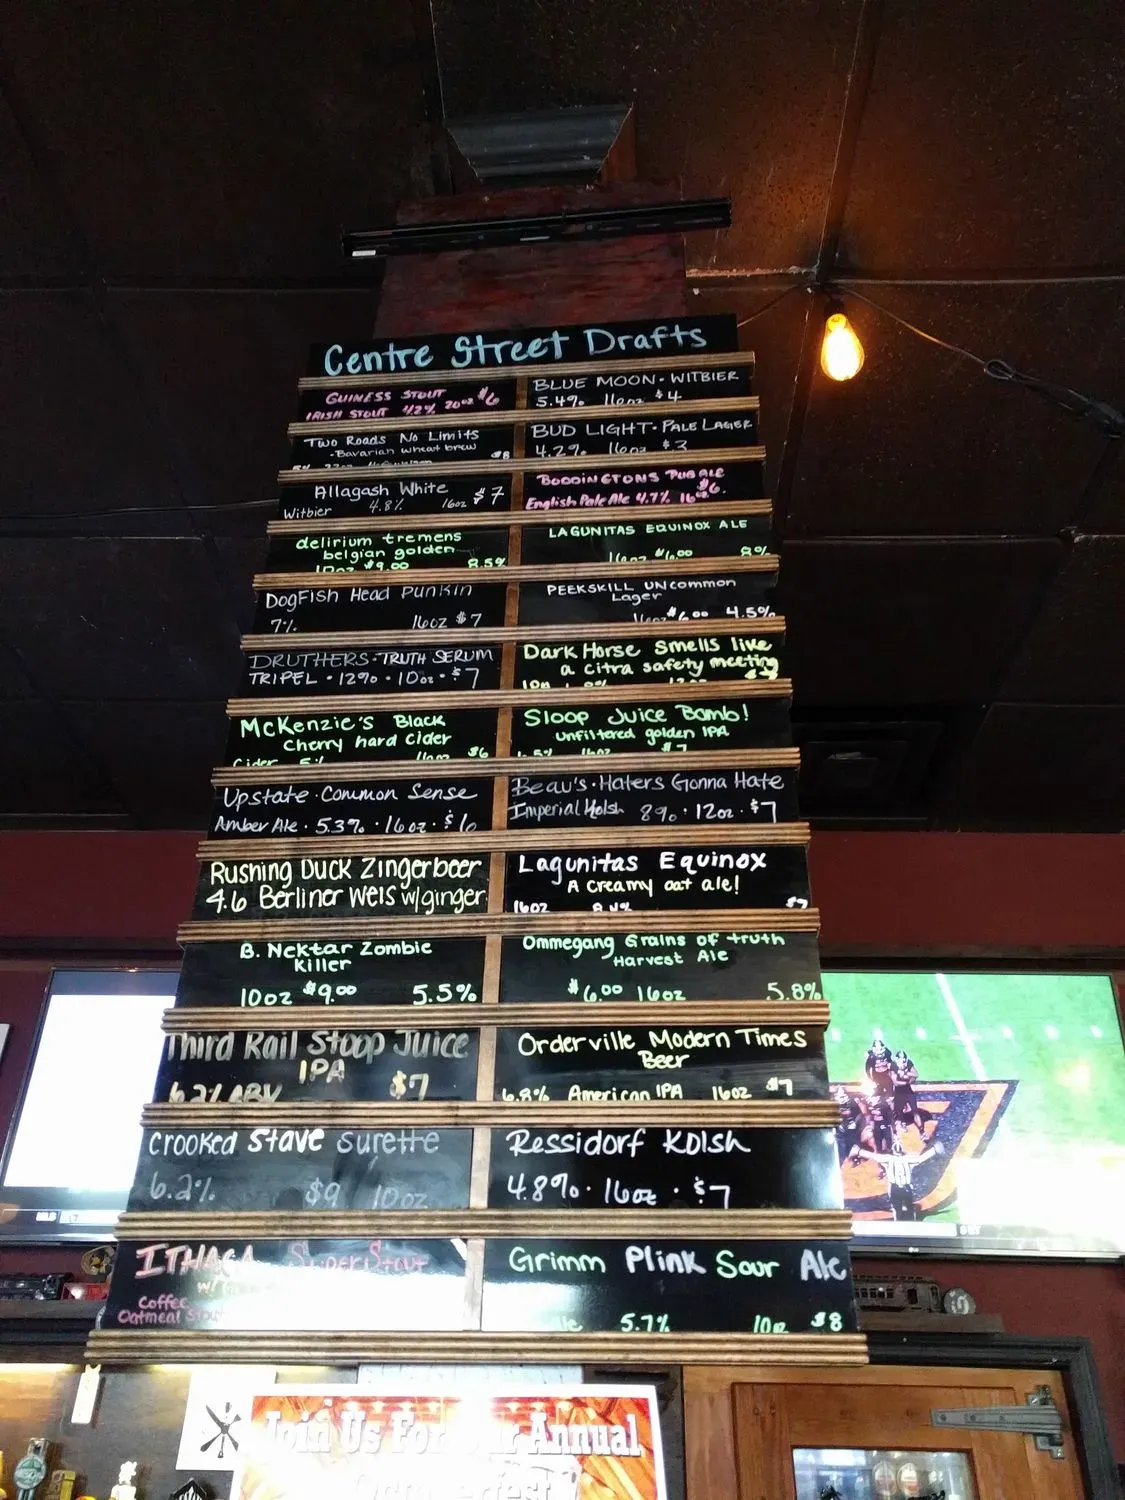 Centre Street Drafts
GUINESS STOUT
IRISH STOUT 4.2% 20oz $6
BLUE MOON · WITBIER
5.4% 16oz $4
Two Roads No Limits
-Bavarian wheat brew
5% $8
BUD LIGHT · PALE LAGER
4.2% 16oz $3
Allagash White
Witbier 4.8% 16oz $7
BODDINGTONS PUB ALE
English Pale Ale 4.7% 16oz $6.
delirium tremens
belgian golden
10oz $9.00 8.5%
LAGUNITAS EQUINOX ALE
16oz $6.00 8%
DogFish Head Punkin
7% 16oz $7
PEEKSKILL UNcommon
Lager
16oz $6.00 4.5%
DRUTHERS · TRUTH SERUM
TRIPEL · 12% · 10oz · $7
Dark Horse Smells like
a citra safety meeting
McKenzie's Black
Cherry hard Cider
Cider 5% 16oz $6
Sloop Juice Bomb!
unfiltered golden IPA
6.5% 16oz $7
Upstate · Common Sense
Amber Ale · 5.3% · 16oz · $6
Beau's · Haters Gonna Hate
Imperial Kolsh 8% · 12oz · $7
Rushing Duck Zingerbeer
4.6 Berliner Weis w/ginger
Lagunitas Equinox
A creamy oat ale!
16oz 8.4% $7
B. Nektar Zombie
Killer
10oz $9.00 5.5%
Ommegang Grains of truth
Harvest Ale
$6.00 16oz 5.8%
Third Rail Stoop Juice
IPA
6.2% ABV $7
Orderville Modern Times
Beer
6.8% American IPA 16oz $7
Crooked Stave Surette
6.2% $9 10oz
Ressidorf Kolsh
4.8% · 16oz · $7
ITHACA Super Stout
w/
Coffee
Oatmeal Stout
Grimm Plink Sour Ale
5.7% 10oz $8
Join Us For Our Annual
Octoberfest